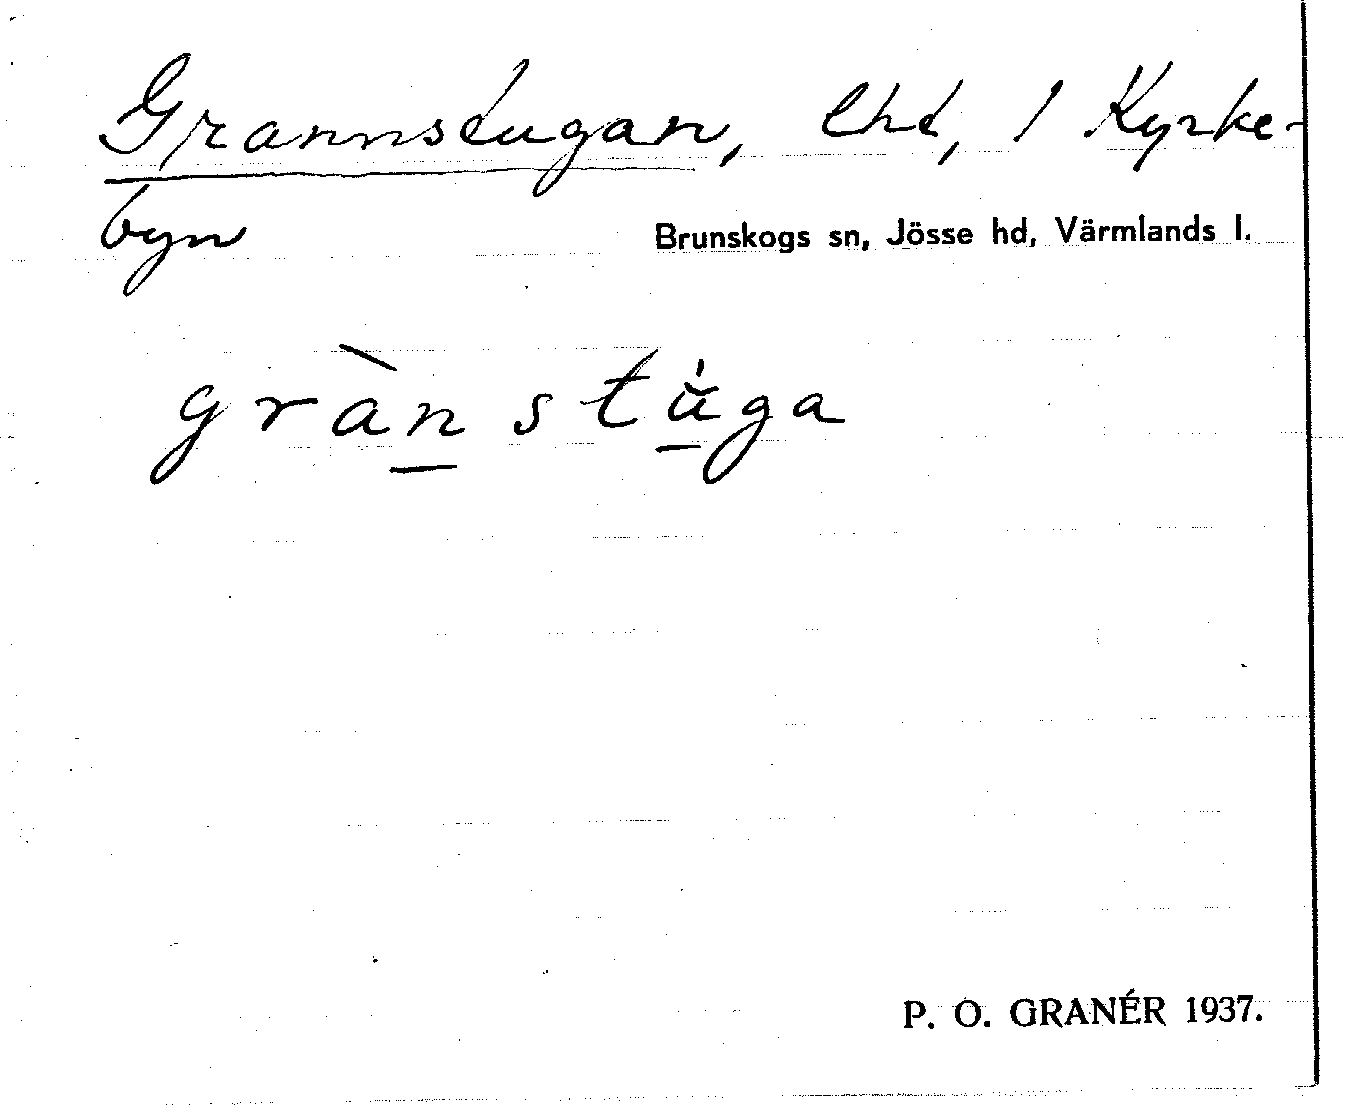 Grannstugan, lhd, 1 Kyrke-
byn
Brunskogs sn, Jösse hd, Värmlands l.
gràn stu̇ga
P. O. GRANÉR 1937.